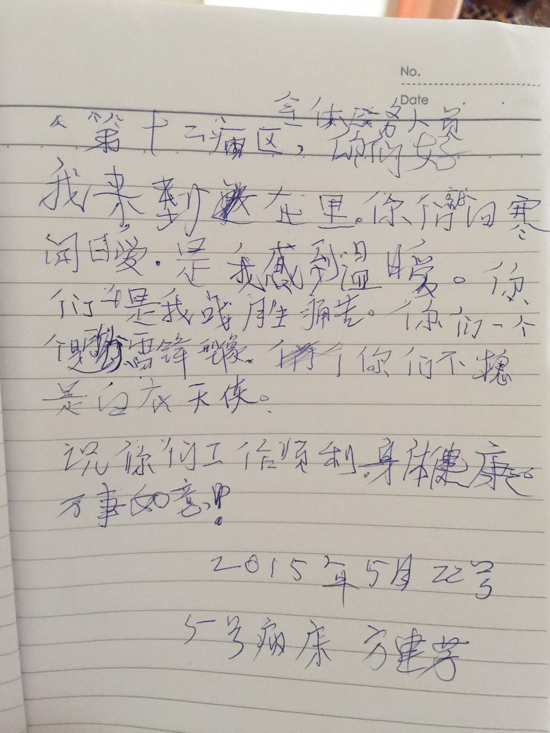 No.
Date
全体医务人员
第十二病区，你们好
我来到这在里。你们的寒
闻日爱. 是我感到温暖。你
们是我 痛苦。你们一个
个 雷锋 像. 你们不愧
是白衣天使。
祝你们工作顺利.身体健康.
万事如意!
2015年5月22号
5号病床 方建芳